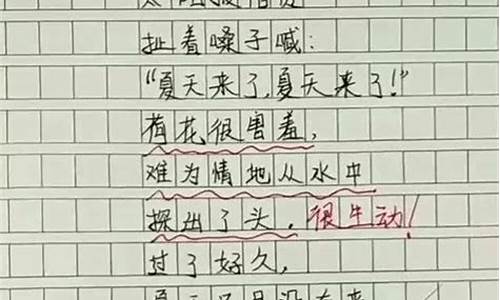 扯着嗓子喊：
“夏天来了，夏天来了！”
荷花很害羞，
难为情地从水中
探出了头，很生动！
过了好久，